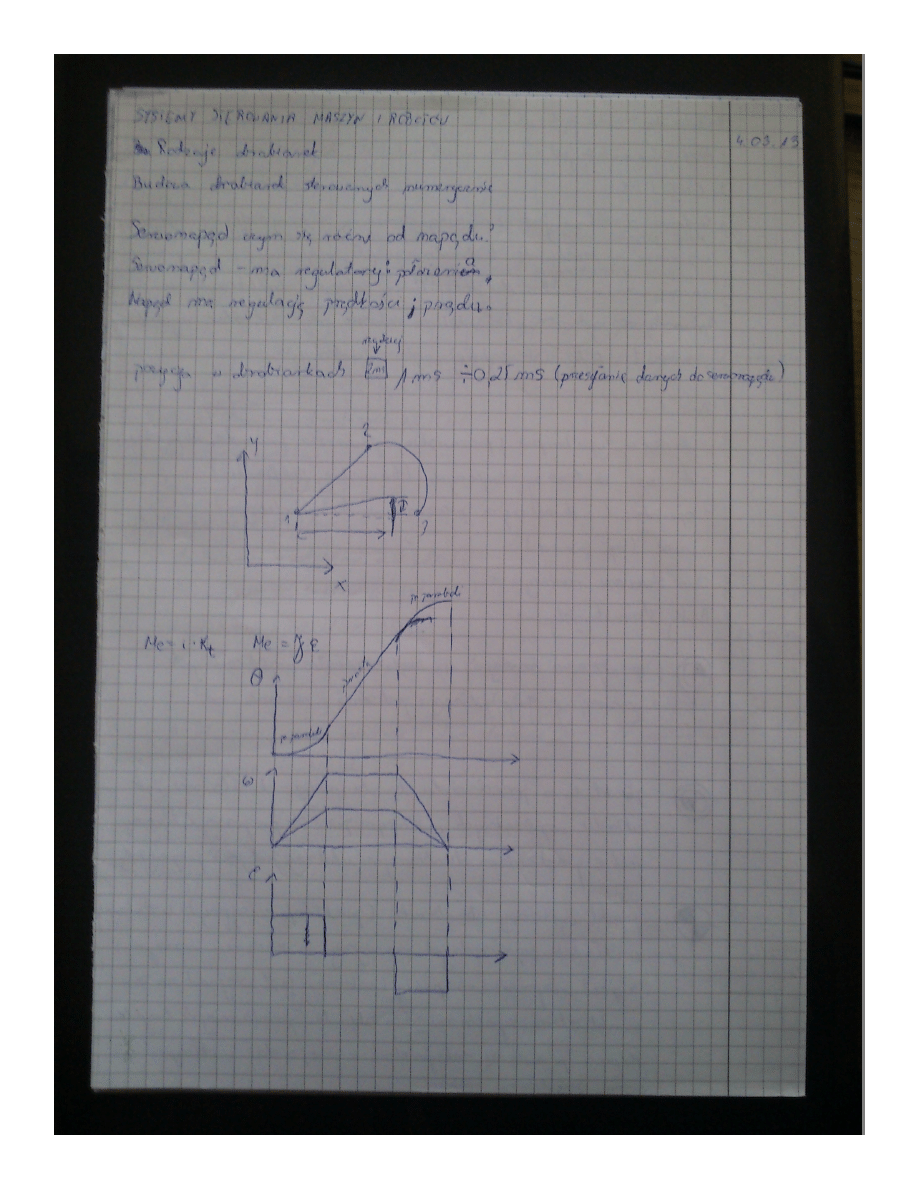 SYSTEMY STEROWANIA MASZYN I ROBOTÓW
4.03.13
Rodzaje obrabiarek
Budowa obrabiarek sterowanych numerycznie
Serwonapęd czym się różni od napędu?
Serwonapęd - ma regulatory: położenia,
Napęd ma regulację prędkości i prądu.
pozycja w obrabiarkach 2ms / 1 ms ÷ 0,25 ms (przesyłanie danych do serwonapędu)
y
2
1
3
x
Me = i · Kt Me = J·ε
θ
ω
ε